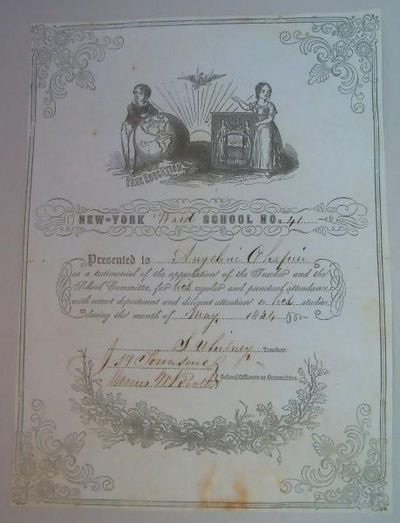 FREE EDUCATION
NEW-YORK Ward SCHOOL NO. 41
Presented to Angeline Chapin
as a testimonial of the approbation of the Teacher and the
School Committee, for her regular and punctual attendance,
with correct deportment and diligent attention to her studies,
during the month of May, 1854
S. Whitney Teacher.
J. W. Townsend
School Officers or Committee.